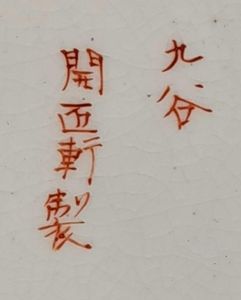 九谷
開匝軒製